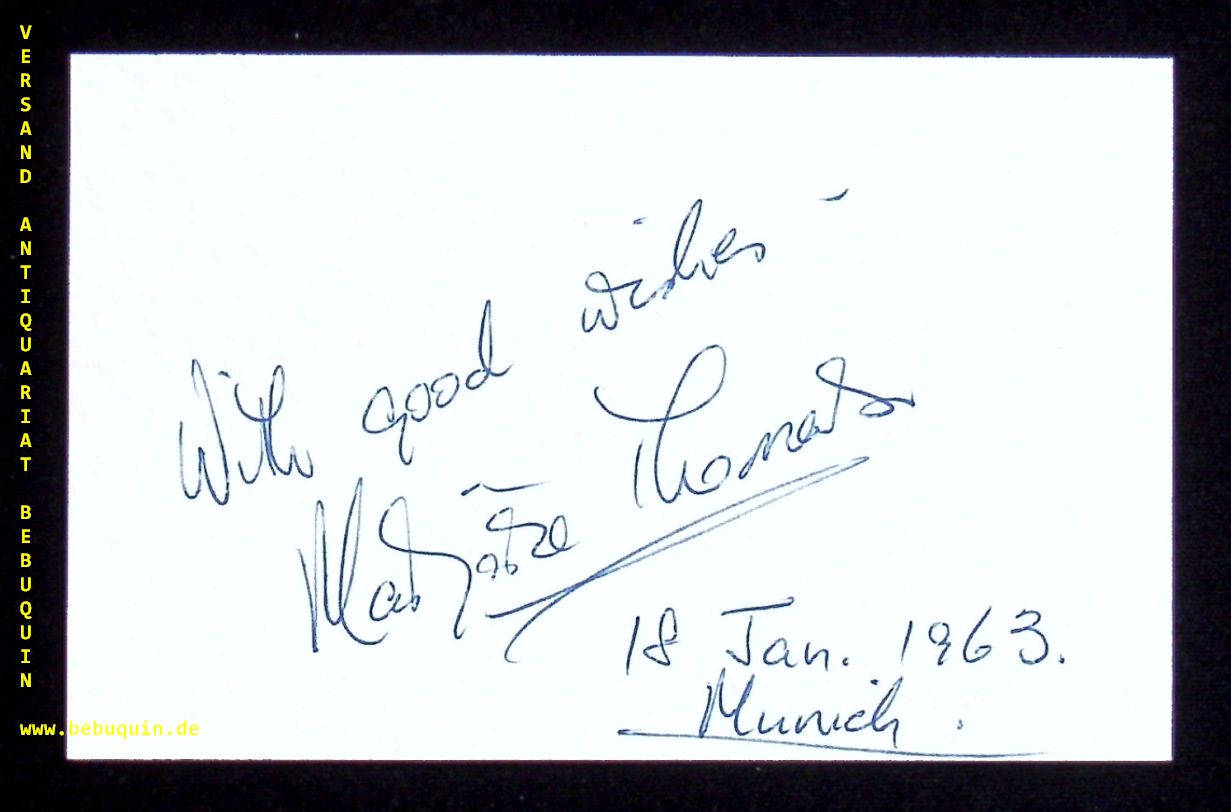 VERSAND ANTIQUARIAT BEBUQUIN
With good wishes -
Thomas
18 Jan. 1963.
Munich.
www.bebuquin.de